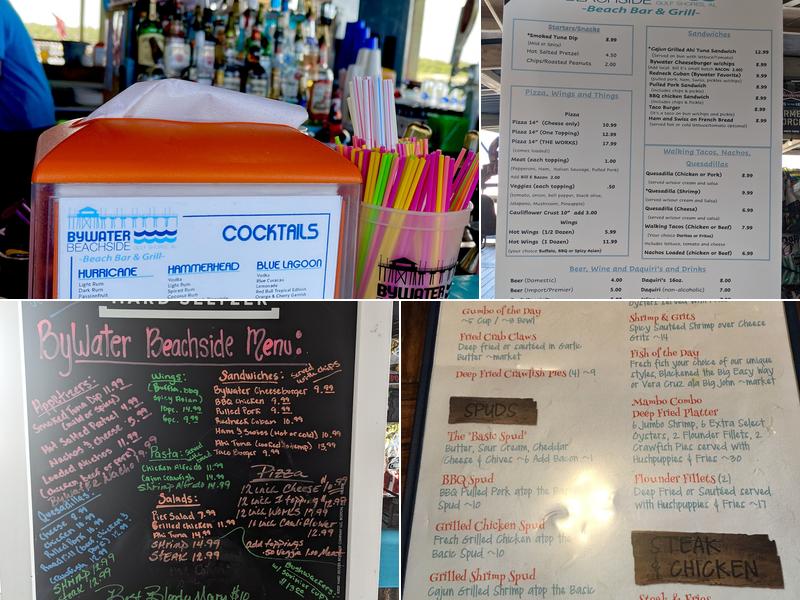 BYWATER
BEACHSIDE
GULF SHORES, AL
-Beach Bar & Grill-
COCKTAILS
HURRICANE
Light Rum
Dark Rum
Passionfruit
HAMMERHEAD
Vodka
Light Rum
Spiced Rum
Coconut Rum
BLUE LAGOON
Vodka
Blue Curacao
Lemonade
Red Bull Tropical Edition
Orange & Cherry Garnish
BYWATER
BEACHSIDE
GULF SHORES, AL
-Beach Bar & Grill-
Starters/Snacks
*Smoked Tuna Dip 8.99
(Mild or Spicy)
Hot Salted Pretzel 4.50
Chips/Roasted Peanuts 2.00
Pizza, Wings and Things
Pizza
Pizza 14" (Cheese only) 10.99
Pizza 14" (One Topping) 12.99
Pizza 14" (THE WORKS) 17.99
(comes loaded!)
Meat (each topping) 1.00
(Pepperoni, Ham, Italian Sausage, Pulled Pork)
Add Bill E Bacon 2.00
Veggies (each topping) .50
(tomato, onion, bell pepper, black olive,
Jalapeno, Mushroom, Pineapple)
Cauliflower Crust 10" add 3.00
Wings
Hot Wings (1/2 Dozen) 5.99
Hot Wings (1 Dozen) 11.99
(Your choice Buffalo, BBQ or Spicy Asian)
Sandwiches
*Cajun Grilled Ahi Tuna Sandwich 12.99
(Served on bun with lettuce/tomato)
Bywater Cheeseburger w/chips 8.99
(Add local Bill E's small batch BACON 2.00)
Redneck Cuban (Bywater Favorite) 9.99
(Pulled pork, Ham, Swiss, pickles w/chips)
Pulled Pork Sandwich 8.99
(includes chips & pickle)
BBQ chicken Sandwich 8.99
(Includes chips & Pickle)
Taco Burger 8.99
(It's a taco on bun w/chips and pickle)
Ham and Swiss on French Bread 8.99
(Served hot or cold lettuce/tomato optional)
Walking Tacos, Nachos,
Quesadillas
Quesadilla (Chicken or Pork) 8.99
(Served w/sour cream and salsa)
*Quesadilla (Shrimp) 9.99
(Served w/sour cream and salsa)
Quesadilla (Cheese) 6.99
(Served w/sour cream and salsa)
Walking Tacos (Chicken or Beef) 7.99
(Your choice Doritos or Fritos)
Includes lettuce, tomato and cheese
Nachos (Chicken or Beef) 6.99
Beer, Wine and Daquiri's and Drinks
Beer (Domestic) 4.00
Beer (Import/Premier) 5.00
Daquiri's 16oz. 8.00
Daquiri (non-alcoholic) 7.00
HARD SELTZER
ByWater Beachside Menu:
Appitizers:
Smoked Tuna Dip 11.99
(mild or spicy)
Hot Salted Pretzel 4.99
Nachos & cheese 5.99
Loaded Nachos 11.99
Quesadillas:
Cheese 9.99
Chicken 11.99
Pulled Pork
SHrimp 13.99
Steak 12.99
Wings:
(Buffalo, bbq
spicy Asian)
10pc. 14.99
6pc. 9.99
Pasta: served
Chicken Alfredo 11.99
Cajun Crawfish 14.99
SHrimp Alfredo 14.99
Salads:
Pier Salad 7.99
Grilled chicken 11.99
Ahi Tuna 14.99
SHrimp 14.99
STEAK 12.99
Sandwiches: served with chips
Bywater Cheeseburger 9.99
BBQ chicken 9.99
Pulled Pork 9.99
Redneck Cuban 10.99
Ham & Swiss (Hot or cold) 10.99
Ahi Tuna 13.99
Taco Burger 9.99
Pizza
12 inch Cheese
12 inch 1 topping 12.99
12 inch WORKS
10 inch Cauliflower
12.99
add toppings
.50 Veggie 1.00 Meat
Bushwackers
w/ souvineer cup
Best Bloody Mary $10
Gumbo of the Day
~5 Cup / ~8 Bowl
Fried Crab Claws
Deep fried or sautéed in Garlic
Butter ~market
Deep Fried Crawfish Pies (4) ~9
SPUDS
The "Basic Spud"
Butter, Sour Cream, Cheddar
Cheese & Chives ~6 Add Bacon ~1
BBQ Spud
BBQ Pulled Pork atop the Basic
Spud ~10
Grilled Chicken Spud
Fresh Grilled Chicken atop the
Basic Spud ~10
Grilled Shrimp Spud
Cajun Grilled Shrimp atop the Basic
Oysters served with
Shrimp & Grits
Spicy Sautéed Shrimp over Cheese
Grits ~14
Fish of the Day
Fresh fish your choice of our unique
styles, Blackened the Big Easy Way
or Vera Cruz ala Big John ~market
Mambo Combo
Deep Fried Platter
6 Jumbo Shrimp, 6 Extra Select
Oysters, 2 Flounder Fillets, 2
Crawfish Pies served with
Hushpuppies & Fries ~30
Flounder Fillets (2)
Deep Fried or Sautéed served
with Hushpuppies & Fries ~17
STEAK
& CHICKEN
Steak & Fries